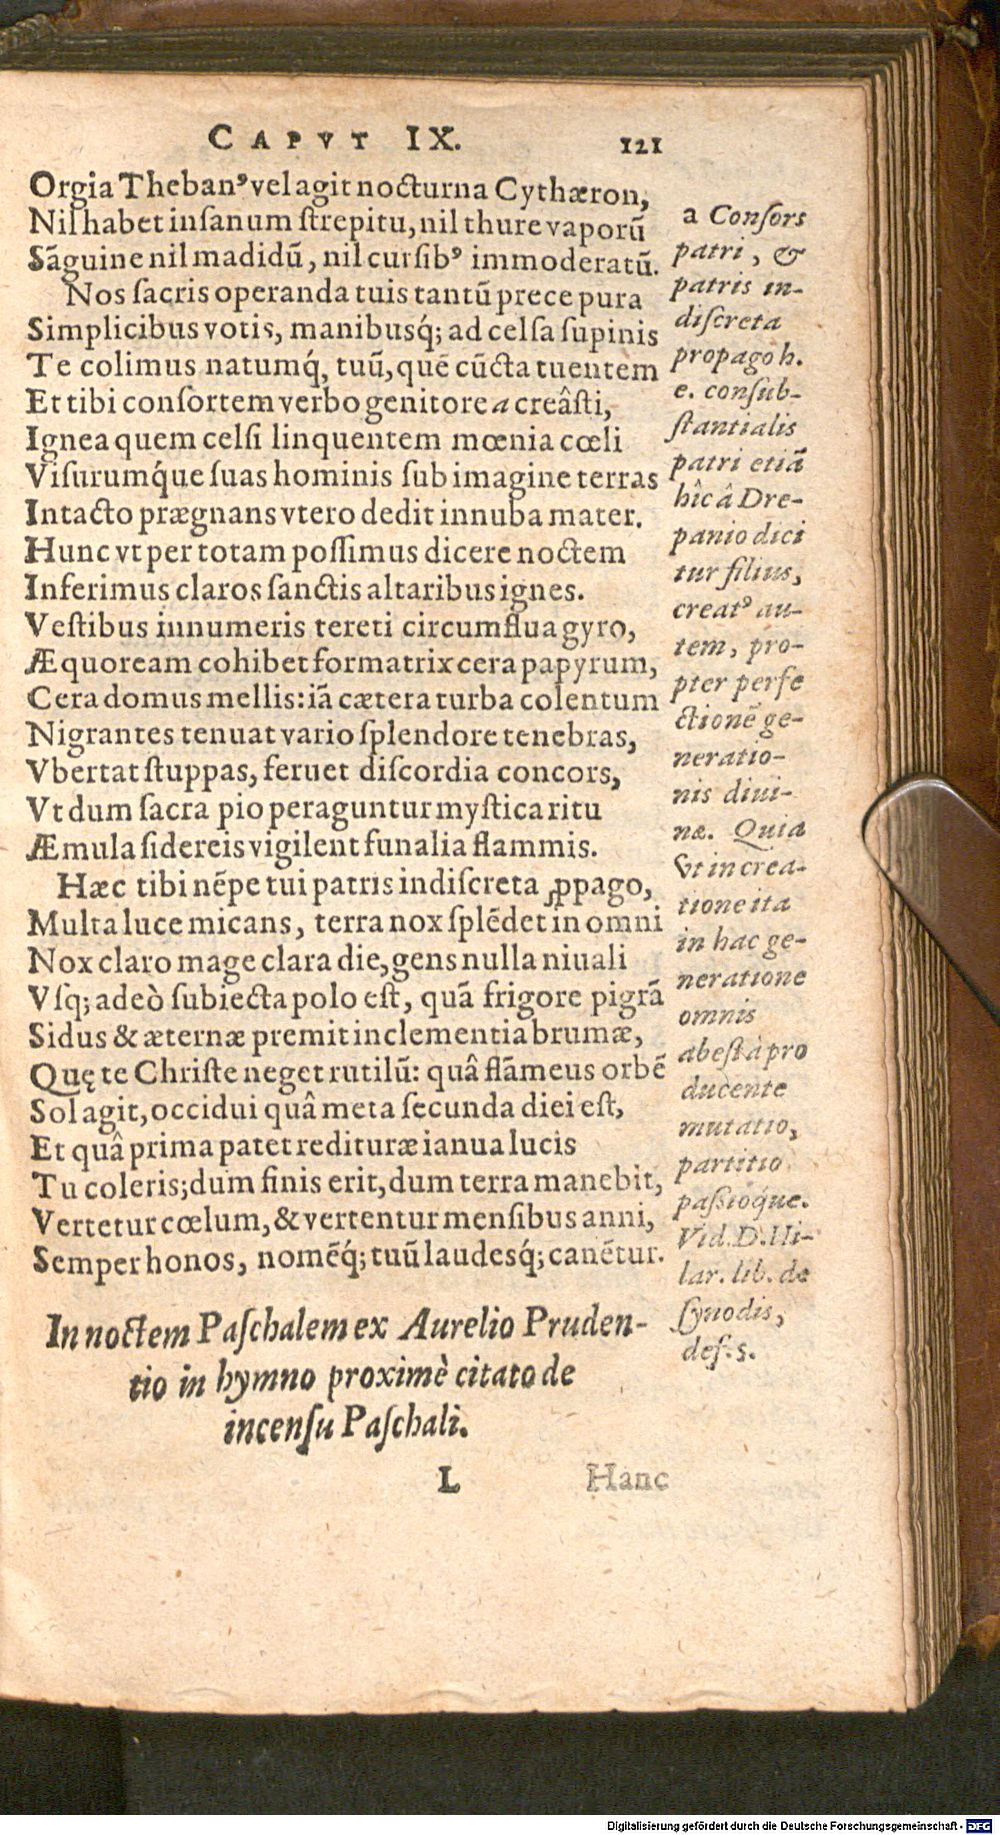 CAPVT IX. 121
Orgia Thebanꝰ vel agit nocturna Cythæron,
Nil habet insanum strepitu, nil thure vaporũ
Sãguine nil madidũ, nil cursibꝰ immoderatũ.
Nos sacris operanda tuis tantũ prece pura
Simplicibus votis, manibusq́; ad celsa supinis
Te colimus natumq́, tuũ, quẽ cũcta tuentem
Et tibi consortem verbo genitore a creâsti,
Ignea quem celsi linquentem mœnia cœli
Visurumq́ue suas hominis sub imagine terras
Intacto prægnans vtero dedit innuba mater.
Hunc vt per totam possimus dicere noctem
Inferimus claros sanctis altaribus ignes.
Vestibus innumeris tereti circumflua gyro,
Æquoream cohibet formatrix cera papyrum,
Cera domus mellis: iã cætera turba colentum
Nigrantes tenuat vario splendore tenebras,
Vbertat stuppas, feruet discordia concors,
Vt dum sacra pio peraguntur mystica ritu
Æmula sidereis vigilent funalia flammis.
Hæc tibi nẽpe tui patris indiscreta ꝓpago,
Multa luce micans, terra nox splẽdet in omni
Nox claro mage clara die, gens nulla niuali
Vsq; adeò subiecta polo est, quã frigore pigrã
Sidus & æternæ premit inclementia brumæ,
Quę te Christe neget rutilũ: quâ flãmeus orbẽ
Sol agit, occidui quâ meta secunda diei est,
Et quâ prima patet redituræ ianua lucis
Tu coleris; dum finis erit, dum terra manebit,
Vertetur cœlum, & vertentur mensibus anni,
Semper honos, nomẽq́; tuũ laudesq́; canẽtur.
a Consors
patri, &
patris in-
discreta
propago h.
e. consub-
stantialis
patri etiã
hîc â Dre-
panio dici
tur filius,
creatꝰ au-
tem, pro-
pter perfe
ctionẽ ge-
neratio-
nis diui-
næ. Quia
vt in crea-
tione ita
in hac ge-
neratione
omnis
abest à pro
ducente
mutatio,
partitio
passioq́ue.
Vid. D. Hi-
lar. lib. de
synodis,
def. 5.
In noctem Paschalem ex Aurelio Pruden-
tio in hymno proximè citato de
incensu Paschali.
L Hanc
Digitalisierung gefördert durch die Deutsche Forschungsgemeinschaft - DFG